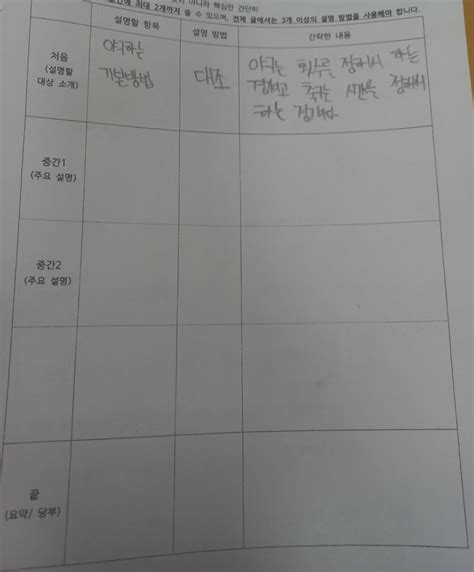 최대 2개까지 쓸 수 있으며, 전체 글에서는 3개 이상의 설명 방법을 사용해야 합니다.
설명할 항목 설명 방법 간략한 내용
처음
(설명할
대상 소개)
야구하는
기본방법
대조
야구는 횟수를 정해서 하는
경기이고 축구는 시간을 정해서
하는 경기다.
중간1
(주요 설명)
중간2
(주요 설명)
끝
(요약/ 당부)